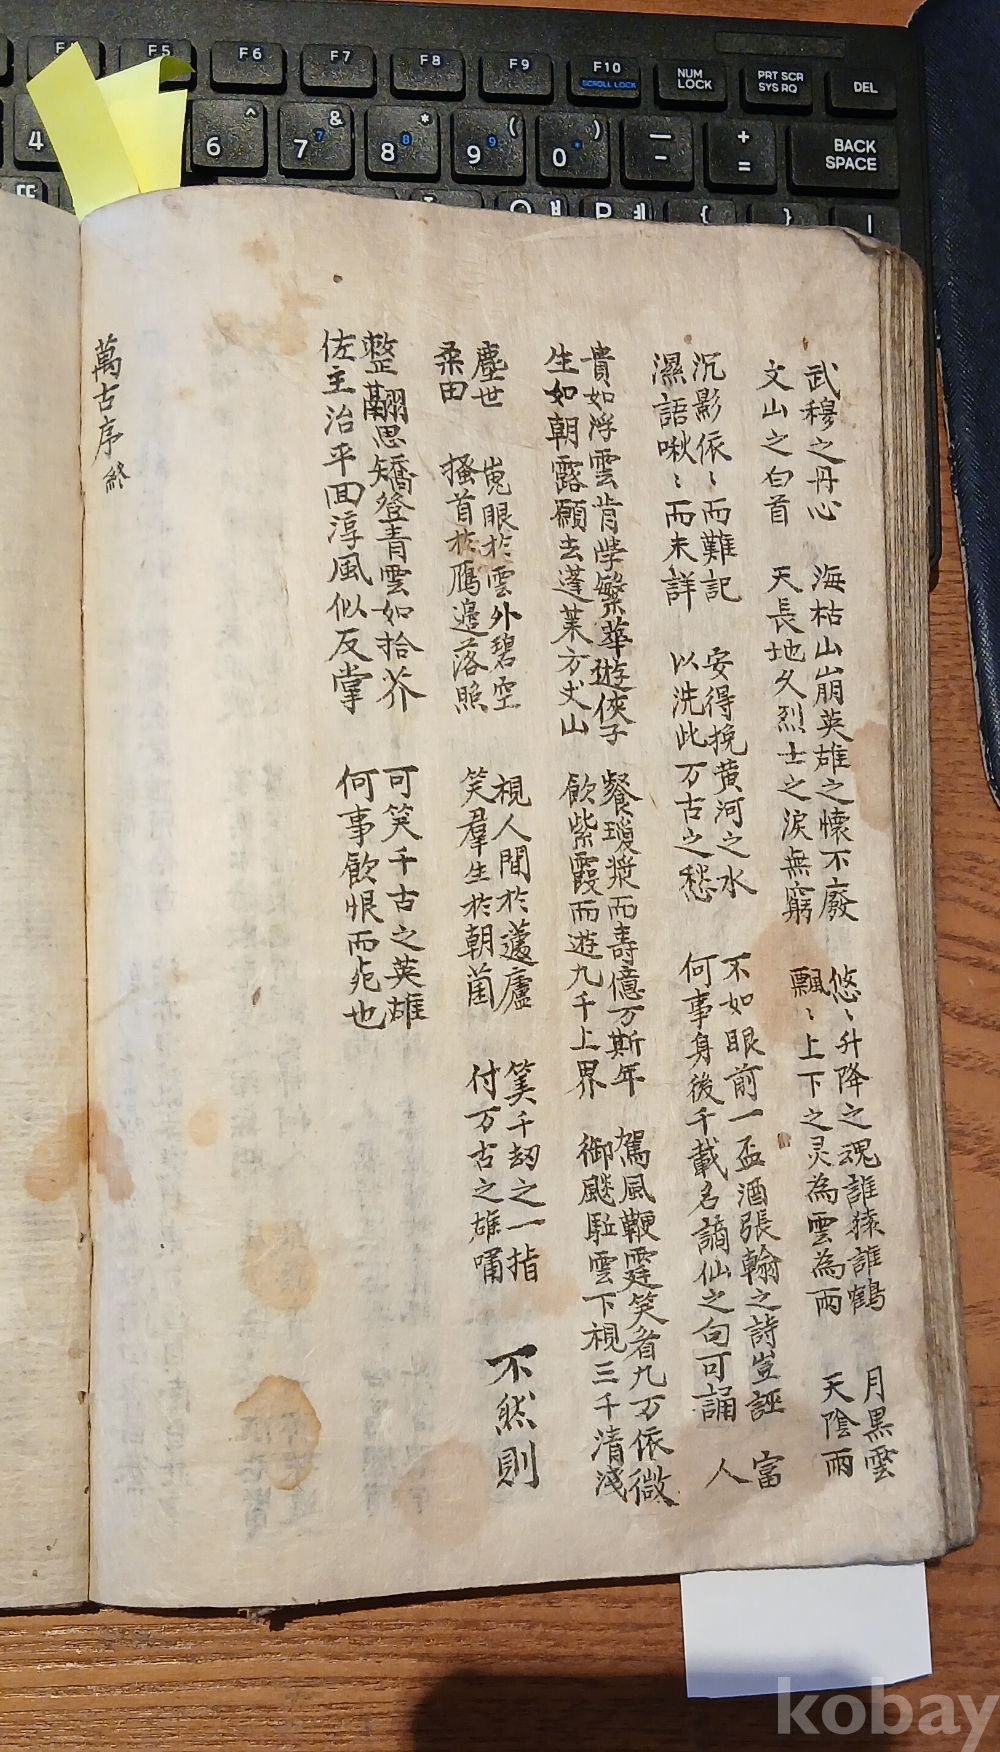 F4
F5
F6
F7
F8
F9
F10
SCROLL LOCK
NUM LOCK
PRT SCR
SYS RQ
DEL
4
6 ^
7 & 7
8 * 8
9 ( 9
0 ) *
— -
+ =
BACK SPACE
ㄸ
{
}
|
武穆之丹心 海枯山崩英雄之懷不廢 悠〻升降之魂誰猿誰鶴 月黑雲
文山之白首 天長地久烈士之淚無窮 飄〻上下之灵為雲為雨 天陰雨
沉影依〻而難記 安得挽黄河之水 不如眼前一盃酒張翰之詩豈誣 富
濕語啾〻而未詳 以洗此万古之愁 何事身後千載名謫仙之句可誦 人
貴如浮雲肯學繁華遊俠子 餐瓊漿而壽億万斯年 駕風鞭霆笑看九万依微
生如朝露願去蓬萊方丈山 飲紫霞而遊九千上界 御飈駈雲下視三千清淺
塵世 嵬眼於雲外碧空 視人間於蘧廬 筭千劫之一指
桑田 搔首於鴈邉落照 笑羣生於朝菌 付万古之雄嘯
不然則
整翮思矯登青雲如拾芥 可笑千古之英雄
佐主治平囬淳風似反掌 何事飲恨而死也
萬古序 終
kobay